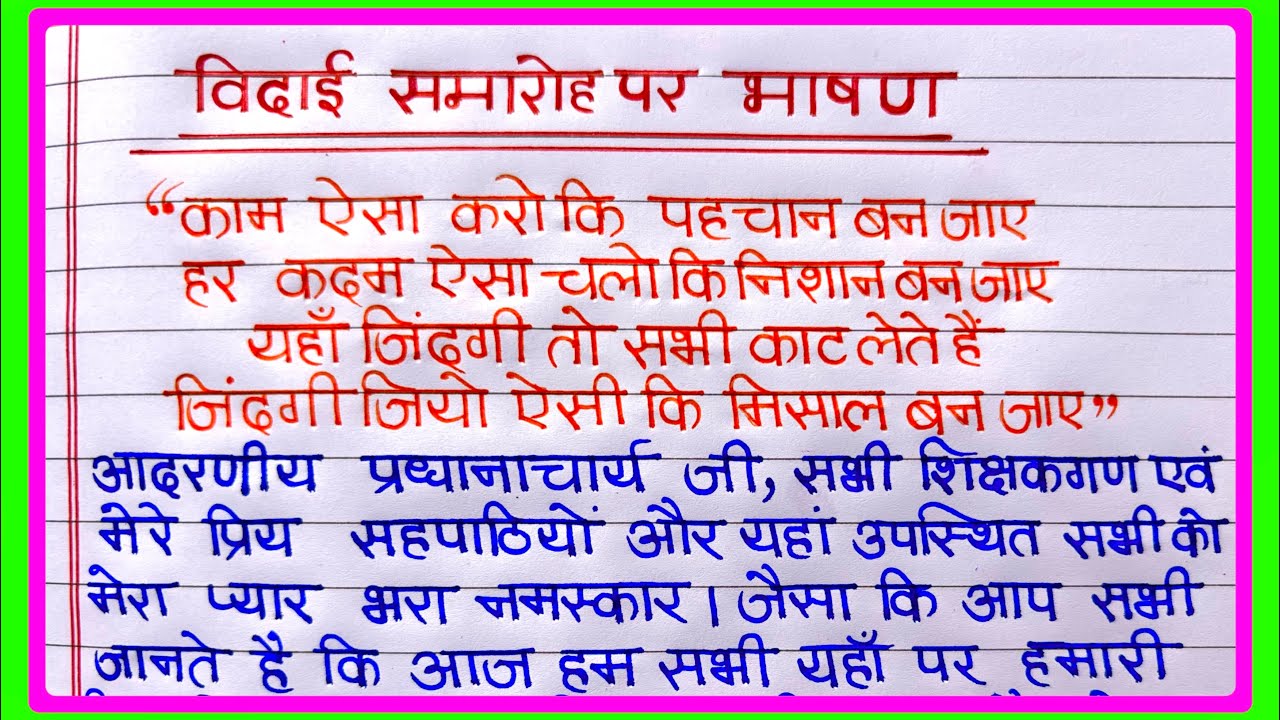 विदाई समारोह पर भाषण
“काम ऐसा करो कि पहचान बन जाए
हर कदम ऐसा चलो कि निशान बन जाए
यहाँ जिंदगी तो सभी काट लेते हैं
जिंदगी जियो ऐसी कि मिसाल बन जाए”
आदरणीय प्रधानाचार्य जी, सभी शिक्षकगण एवं
मेरे प्रिय सहपाठियों और यहां उपस्थित सभी को
मेरा प्यार भरा नमस्कार। जैसा कि आप सभी
जानते है कि आज हम सभी यहाँ पर हमारी